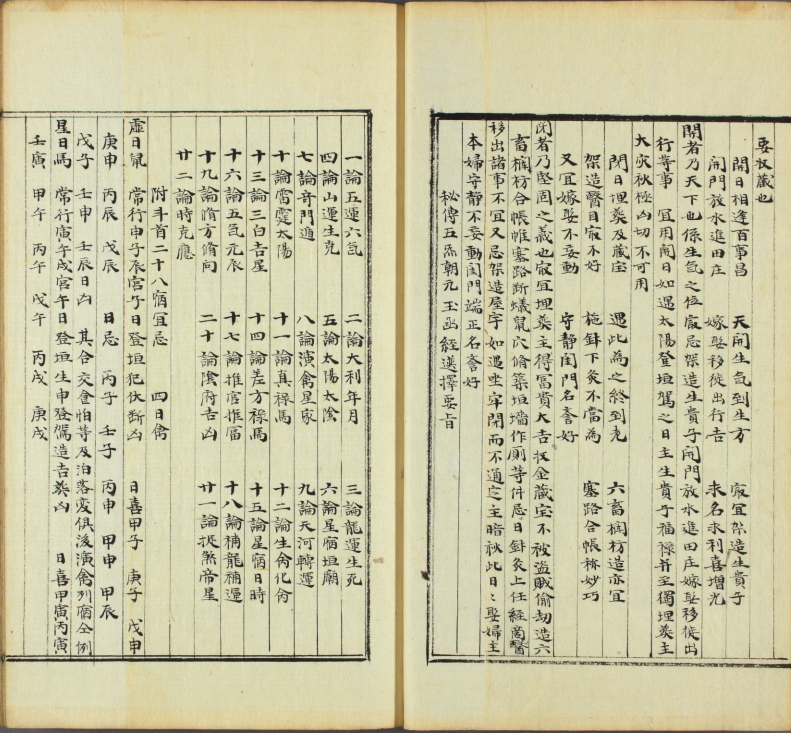 要收藏也
開日相逢百事昌　天開生氣到生方　㝡宜架造生貴子
開門放水進田庄　嫁娶移徙出行吉　求名求利喜增光
開者乃天下也係生气之位㝡忌架造生貴子開門放水進田庄嫁娶移徙出
行等事　宜用開日如遇太陽登垣駕之日主生貴子福祿并至獨埋葬主
大敗極凶切不可用
閉日埋葬及藏宝　遇此為之終到老　六畜栏枋造亦宜
架造醫目㝡不好　施針下灸不當為　塞路合帳称妙巧
又宜嫁娶不妄動　守静閨門名譽好
閉者乃堅固之義也㝡宜埋葬主得富貴大吉收金藏宝不被盜賊偷劫造六
畜栏枋合帳帷塞路斷蟻鼠穴偹築垣墻作厠等件忌日針灸上任經商醫
移出諸事不宜又忌架造屋宇如遇坐牢閉而不通定主暗此日〻娶婦主
本婦守静不妄動閨門端正名譽好
秘傳五炁朝元玉函經選擇要旨
一論五運六気　二論大利年月　三論龍運生死
四論山運生克　五論太陽太陰　六論星宿垣廟
七論竒門遁　八論演禽星家　九論天河轉運
十論雷霆太陽　十一論真祿馬　十二論生命化命
十三論三白吉星　十四論差方祿馬　十五論星宿日時
十六論五気元辰　十七論推官推宿　十八論補龍補運
十九論脩方脩向　二十論陰府吉凶　廿一論煞帝星
廿二論時克應
附斗首二十八宿宜忌　四日禽
虛日鼠　常行申子辰宮子日登垣犯伏断凶　日喜甲子　庚子　戊申
庚申　丙辰　戊辰　日忌　丙子　壬子　丙申　甲申　甲辰
戊子　壬申　壬辰日凶　其合交會怕等及泊落变俱後演禽列宿全例
星日馬　常行寅午戌宮午日登垣生申登駕造吉葬凶　日喜甲寅丙寅
壬寅　甲午　丙午　戊午　丙戌　庚戌